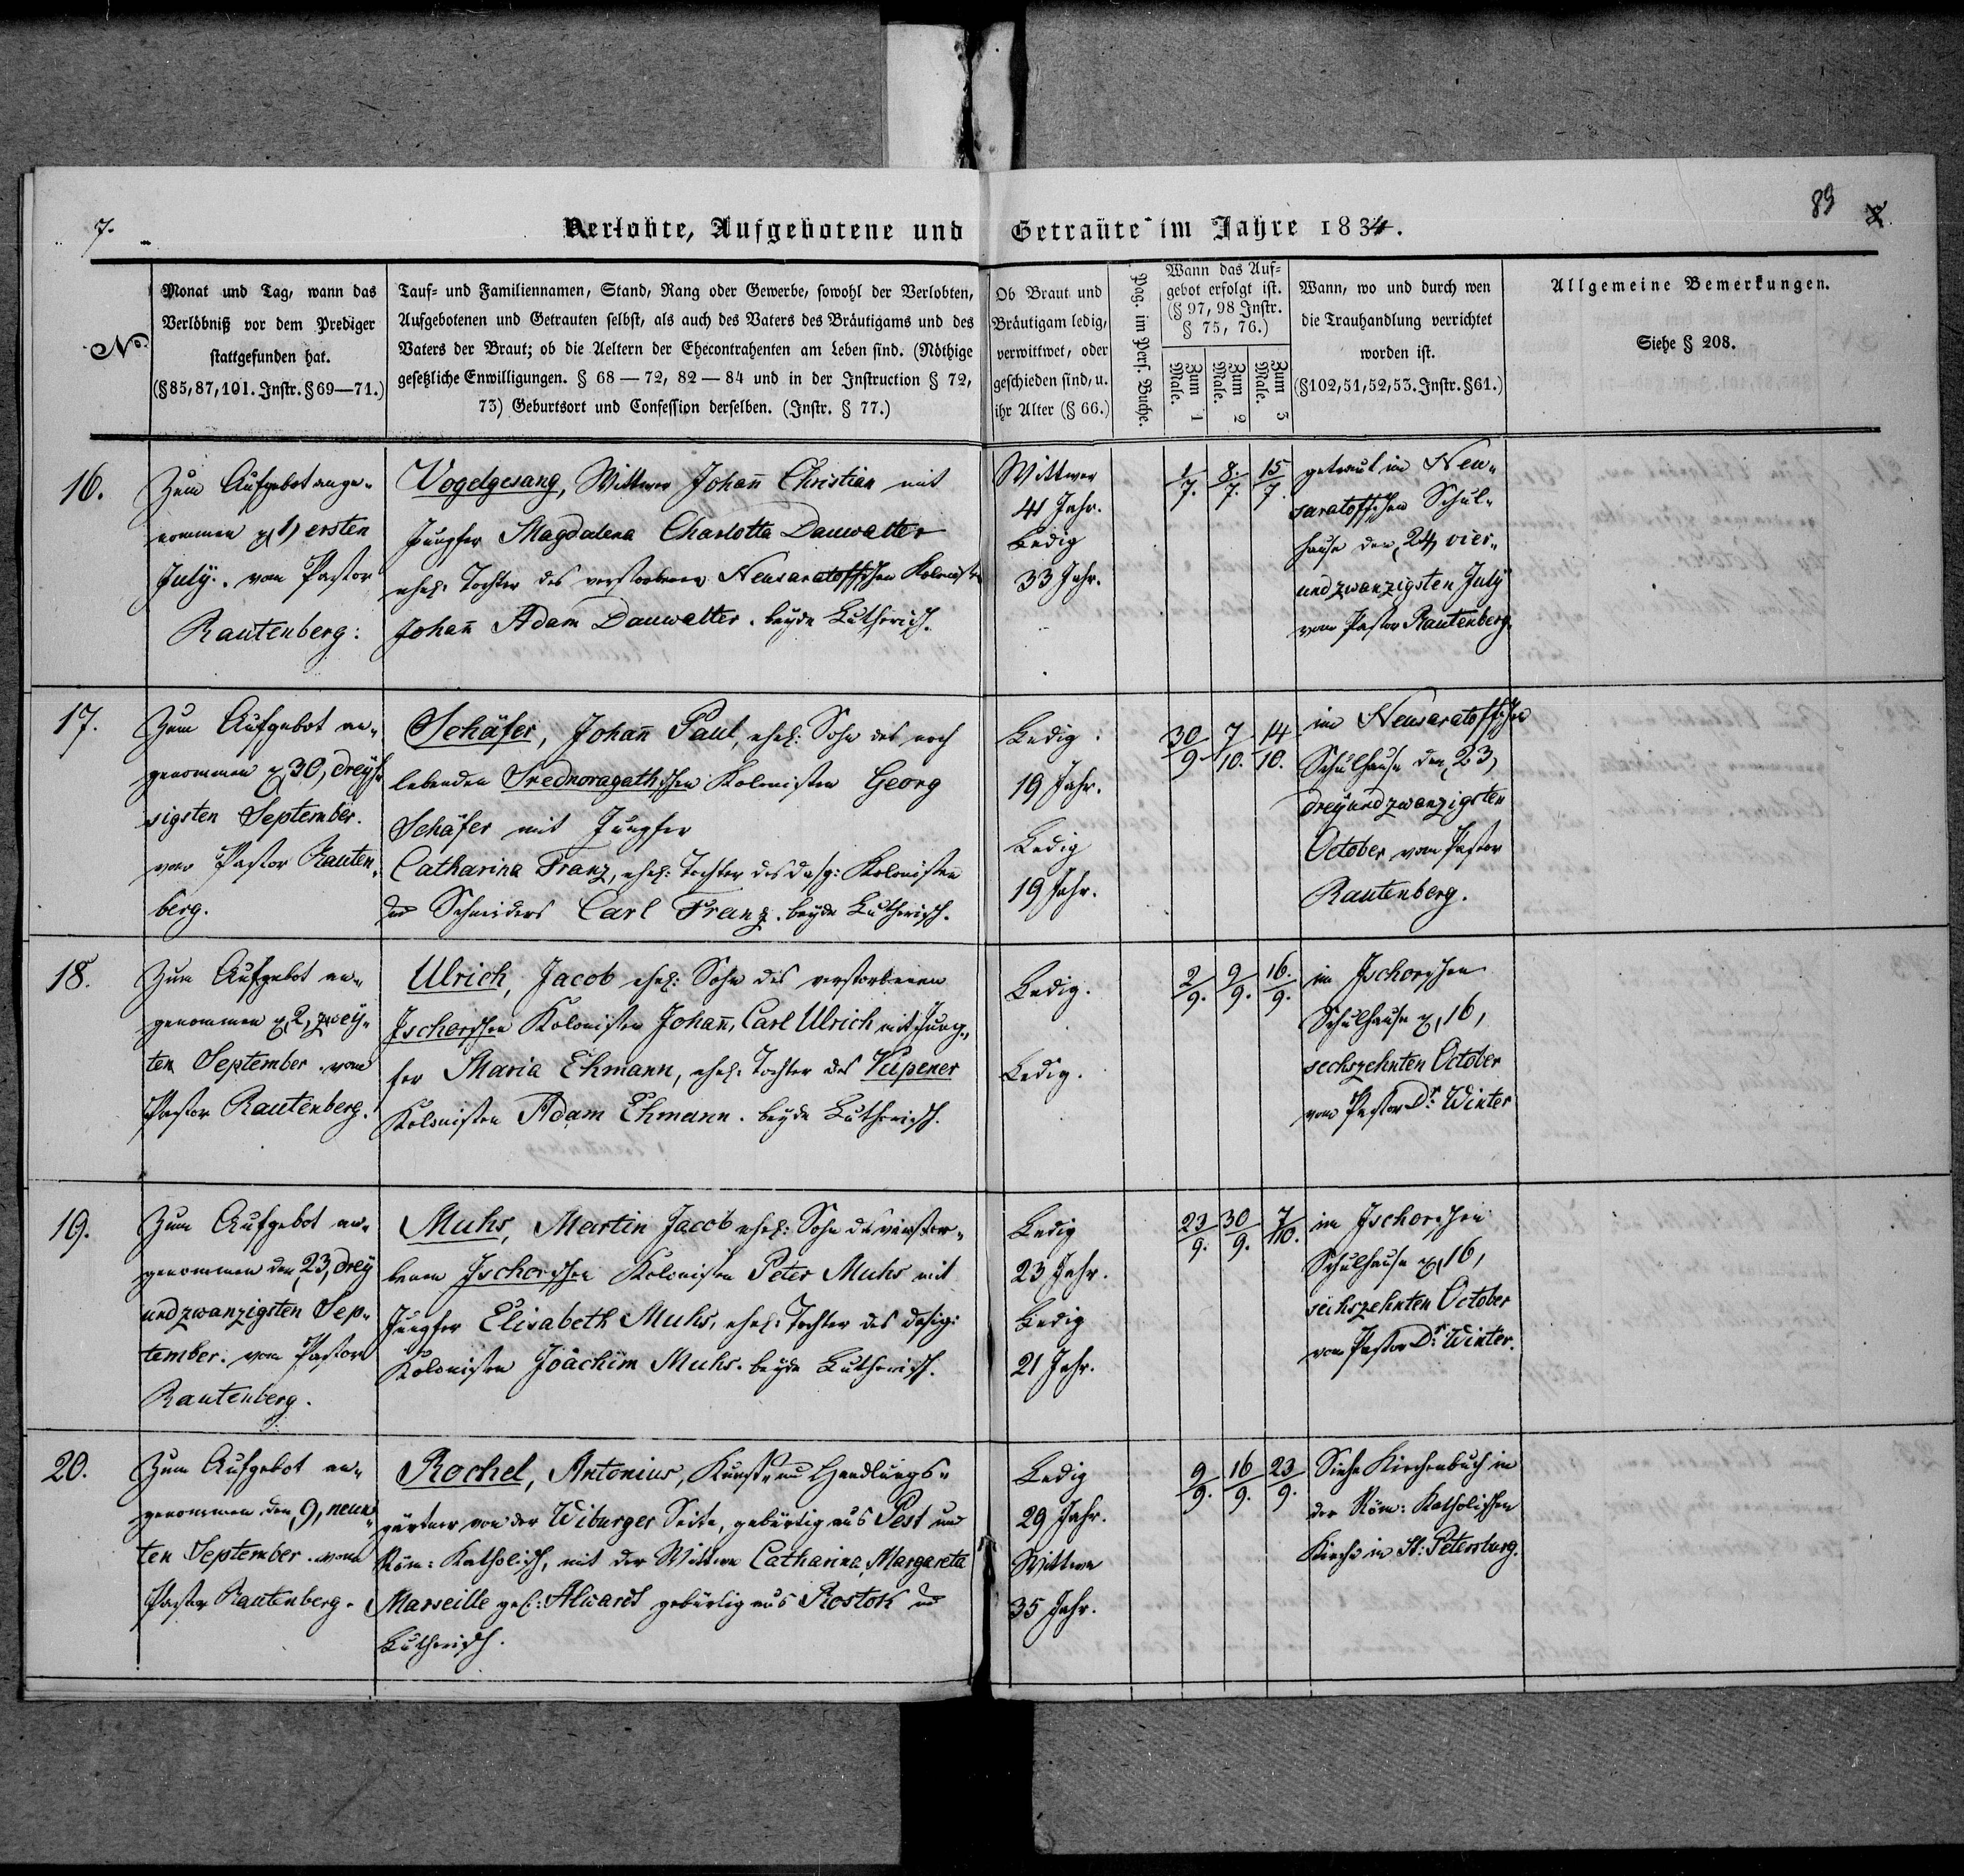 7.
89
Verlobte, Aufgebotene und Getraute im Jahre 1834.
No.
Monat und Tag, wann das
Verlöbniß vor dem Prediger
stattgefunden hat.
(§85, 87, 101. Instr. §69—71.)
Tauf- und Familiennamen, Stand, Rang oder Gewerbe, sowohl der Verlobten,
Aufgebotenen und Getrauten selbst, als auch des Vaters des Bräutigams und des
Vaters der Braut; ob die Aeltern der Ehecontrahenten am Leben sind. (Nöthige
gesetzliche Enwilligungen. § 68—72, 82—84 und in der Instruction § 72,
73) Geburtsort und Confession derselben. (Instr. § 77.)
Ob Braut und
Bräutigam ledig,
verwittwet, oder
geschieden sind, u.
ihr Alter (§ 66.)
Pag. im Pers. Buche.
Wann das Auf-
gebot erfolgt ist.
(§ 97, 98 Instr.
§ 75, 76.)
Zum 1
Male.
Zum 2
Male.
Zum 3
Male.
Wann, wo und durch wen
die Trauhandlung verrichtet
worden ist.
(§102, 51, 52, 53. Instr. §61.)
Allgemeine Bemerkungen.
Siehe § 208.
16.
Zum Aufgebot ange-
nommen d. 1, ersten
July. vom Pastor
Rautenberg.
Vogelgesang, Wittwer Johañ Christian mit
Jungfer Magdalena Charlotta Dauwalter
ehel. Tochter des verstorbenen Neusaratoffschen Kolonisten
Johañ Adam Dauwalter. beyde Lutherisch.
Wittwer
41 Jahr.
Ledig
33 Jahr.
1/7. 8./7. 15/7.
getraut im Neu-
saratoffschen Schul-
hause den 24, vier-
undzwanzigsten July
vom Pastor Rautenberg.
17.
Zum Aufgebot an-
genommen d. 30, dreys-
sigsten September.
vom Pastor Rauten-
berg.
Schäfer, Johañ Paul, ehel: Sohn des noch
lebenden Srednoragathschen Kolonisten Georg
Schäfer mit Jungfer
Catharina Franz, ehel: Tochter des das: Kolonisten
und Schneiders Carl Franz. beyde Lutherisch.
Ledig.
19 Jahr.
Ledig
19 Jahr.
30/9. 7/10. 14/10.
im Neusaratoffschen
Schulhause den 23,
dreyundzwanzigsten
October vom Pastor
Rautenberg.
18.
Zum Aufgebot an-
genommen d. 2, zwey-
ten September. vom
Pastor Rautenberg.
Ulrich, Jacob ehel: Sohn des verstorbenen
Ischorschen Kolonisten Johañ, Carl Ulrich mit Jung-
fer Maria Ehmann, ehel. Tochter des Kipener
Kolonisten Adam Ehmann. beyde Lutherisch.
Ledig.
Ledig.
2/9. 9/9. 16./9.
im Ischorschen
Schulhause d. 16,
sechszehnten October
vom Pastor Dr. Winter
19.
Zum Aufgebot an-
genommen den 23, drey
undzwanzigsten Sep-
tember. vom Pastor
Rautenberg.
Muhs, Martin Jacob ehel: Sohn des verstor-
benen Ischorschen Kolonisten Peter Muhs mit
Jungfer Elisabeth Muhs, ehel: Tochter des dasig:
Kolonisten Joachim Muhs. beyde Lutherisch.
Ledig
23 Jahr.
Ledig
21 Jahr.
23/9. 30/9. 7/10.
im Ischorschen
Schulhause d. 16,
sechszehnten October
vom Pastor Dr. Winter.
20.
Zum Aufgebot an-
genommen den 9, neun-
ten September. vom
Pastor Rautenberg.
Rochel, Antonius, Kunst- und Handlungs-
gärtner von der Wiburger Seite, gebürtig aus Pest und
Röm: Katholisch, mit der Wittwe Catharina Margareta
Marseille geb: Alwardt gebürtig aus Rostok und
Lutherisch.
Ledig
29 Jahr.
Wittwe
35 Jahr.
9/9. 16/9. 23/9.
Siehe Kirchenbuch in
der Röm: Katholischen
Kirche in St: Petersburg.